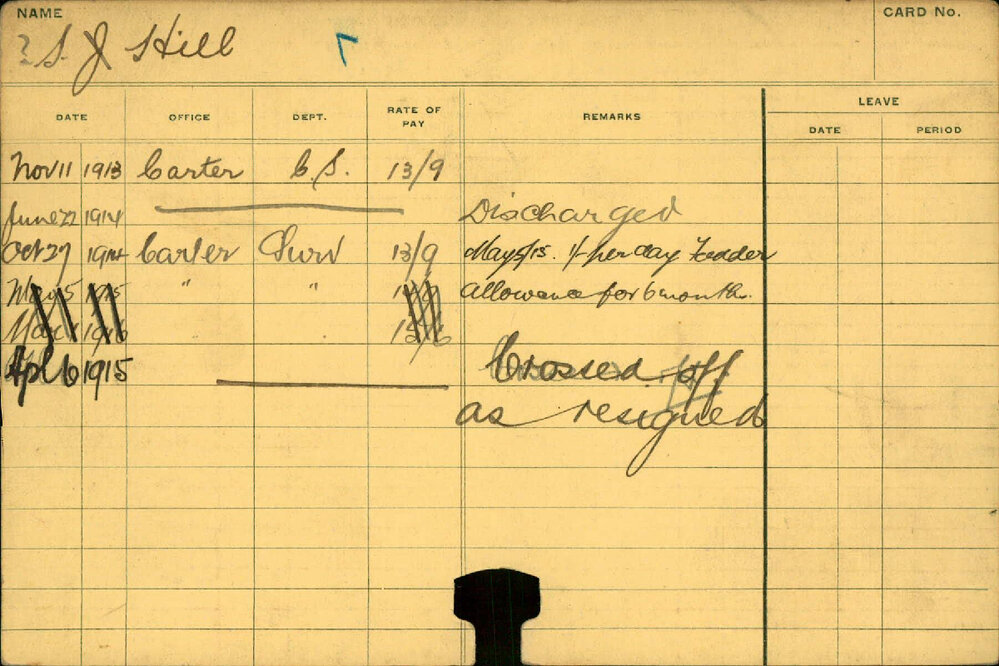 NAME
CARD No.
? S. J Hill
LEAVE
DATE OFFICE DEPT. RATE OF PAY REMARKS DATE PERIOD
Nov 11 1913 Carter C.S. 13/9
June 22 1914 Discharged
Oct 27 1914 Carter Surv 13/9 May 5/15. 1/- per day Fodder
May 5 1915 " " allowance for 6 months.
1916 " " 15/6
Apl 6 1915 Crossed off
as resigned